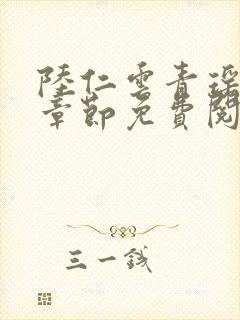 陸仁雲青瑤
章節免費閱
三一錢